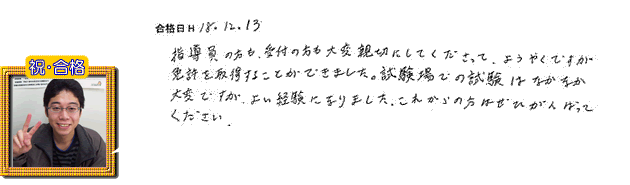 合格日H 18.12.13
祝・合格
指導員の方も、受付の方も大変親切にしてくださって、ようやくですが
免許を取得することができました。試験場での試験はなかなか
大変ですが、よい経験になりました。これからの方はぜひがんばって
ください.